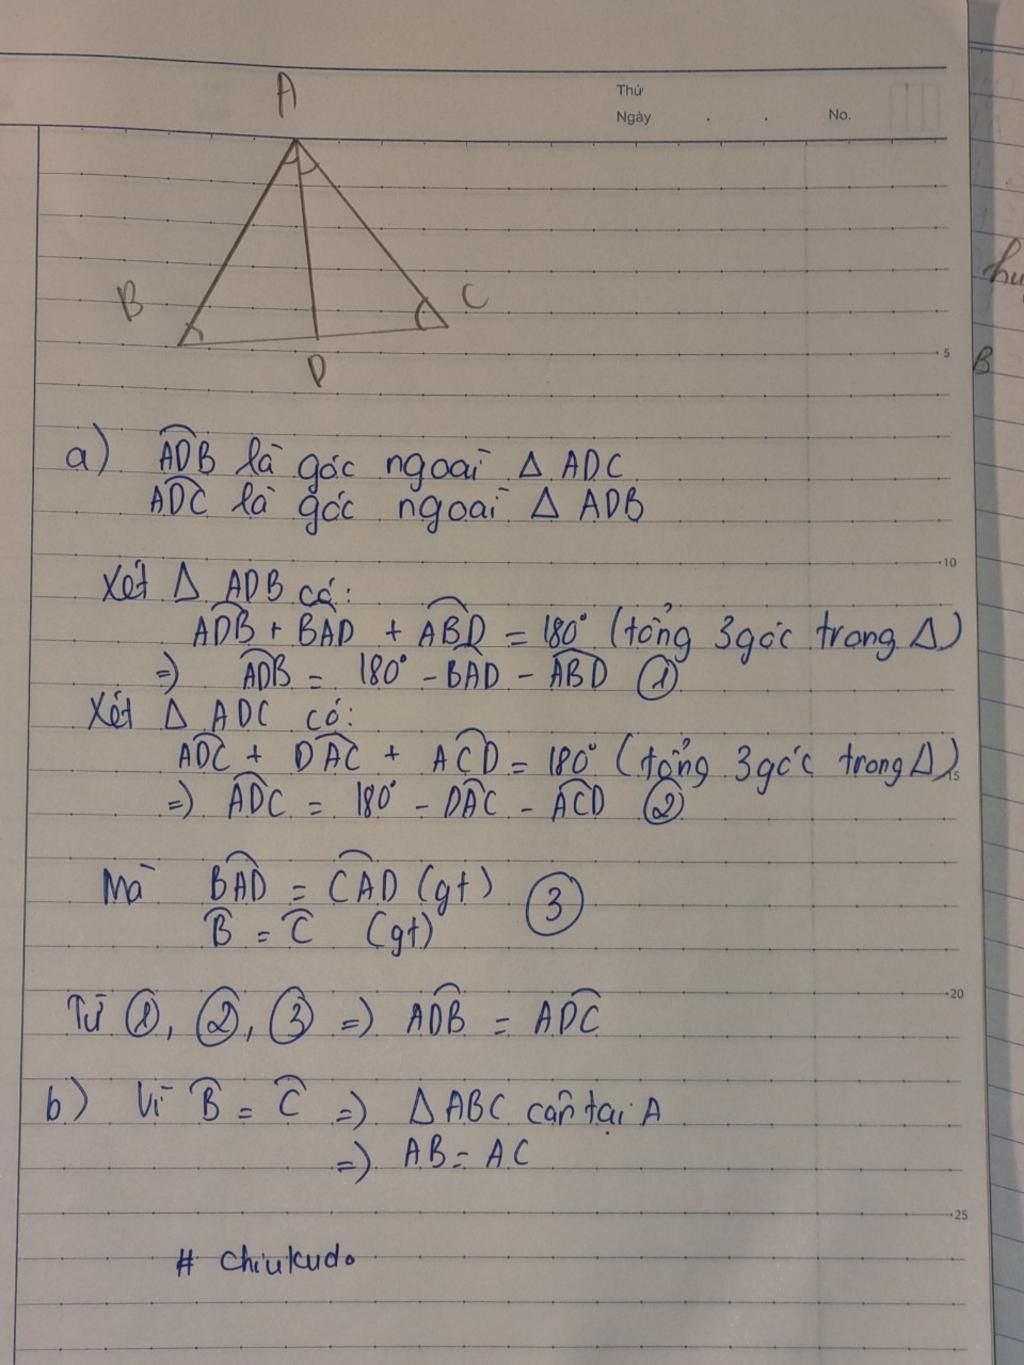 A
Thứ
Ngày . . No.
B
C
D
5
B
a) ADB là góc ngoài Δ ADC
ADC là góc ngoài Δ ADB
10
Xét Δ ADB có:
ADB + BAD + ABD = 180° (tổng 3 góc trong Δ)
=) ADB = 180° - BAD - ABD ①
Xét Δ ADC có:
ADC + DAC + ACD = 180° (tổng 3 góc trong Δ)
15
=) ADC = 180° - DAC - ACD ②
Mà BAD = CAD (gt) ③
B = C (gt)
20
Từ ①, ②, ③ =) ADB = ADC
b) Vì B = C =) Δ ABC cân tại A
=) AB = AC
25
# chiukudo